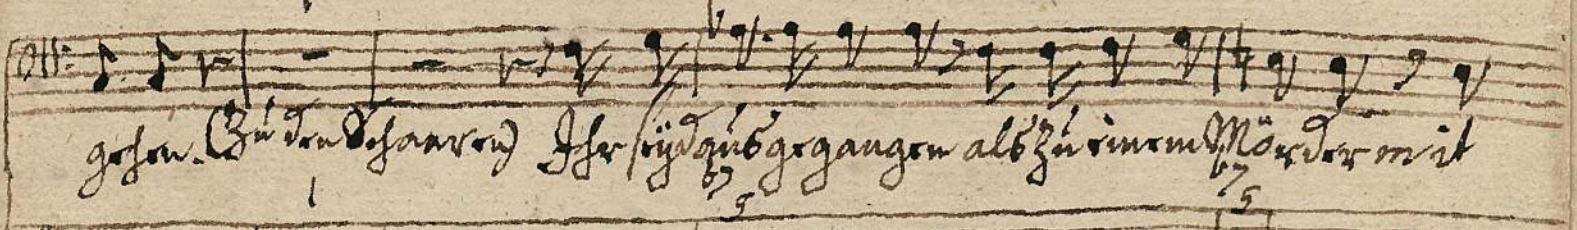 gehen. (Zu den Schaaren) Ihr seÿd ausgegangen als zu einem Mörder mit
b7 b7
5 5